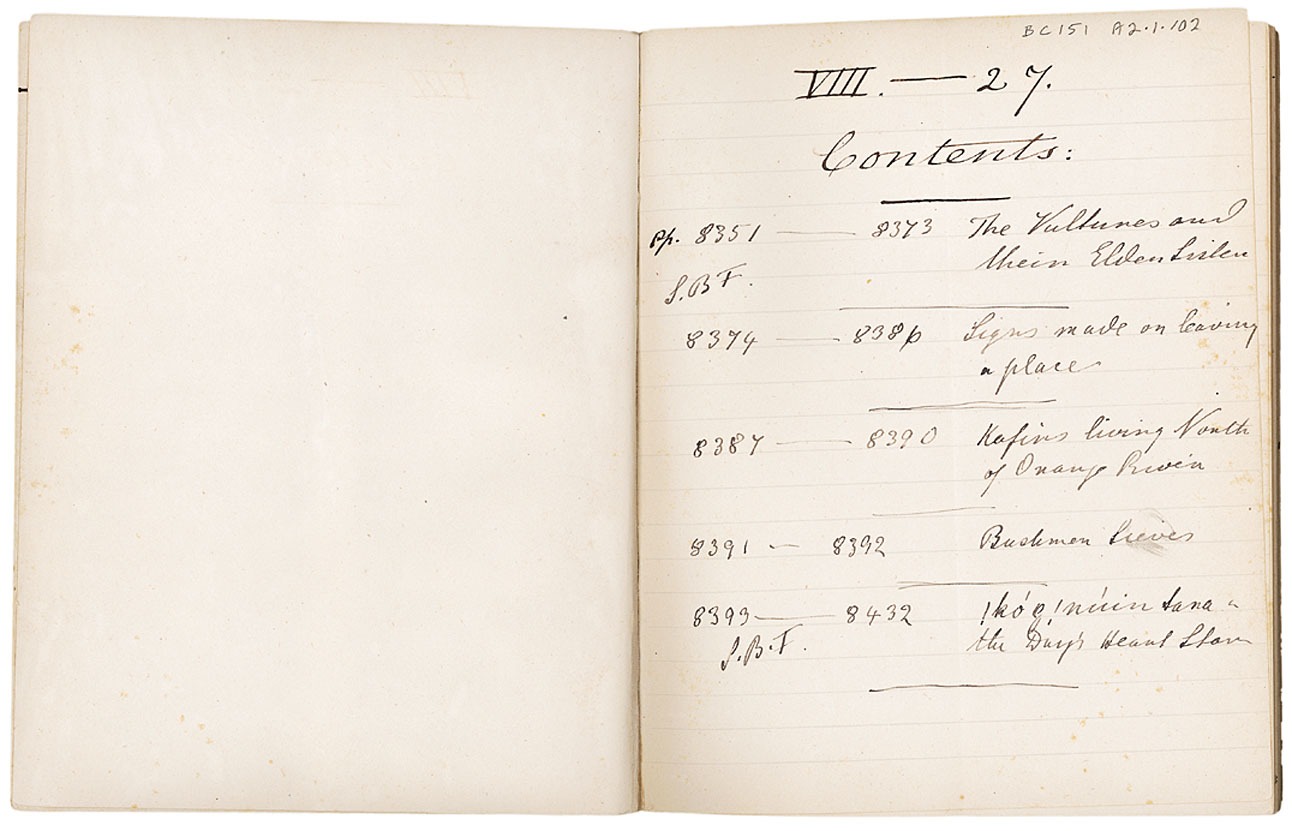 BC151 A2.1.102
VIII. — 27.
Contents:
pp. 8351 — 8373 The Vultures and
their Elder Sister
S.B.F.
8374 — 8386 Signs made on leaving
a place
8387 — 8390 Kafirs living North
of Orange River
8391 — 8392 Bushman Sieves
8393 — 8432
the Day's Heart Star
S.B.F.